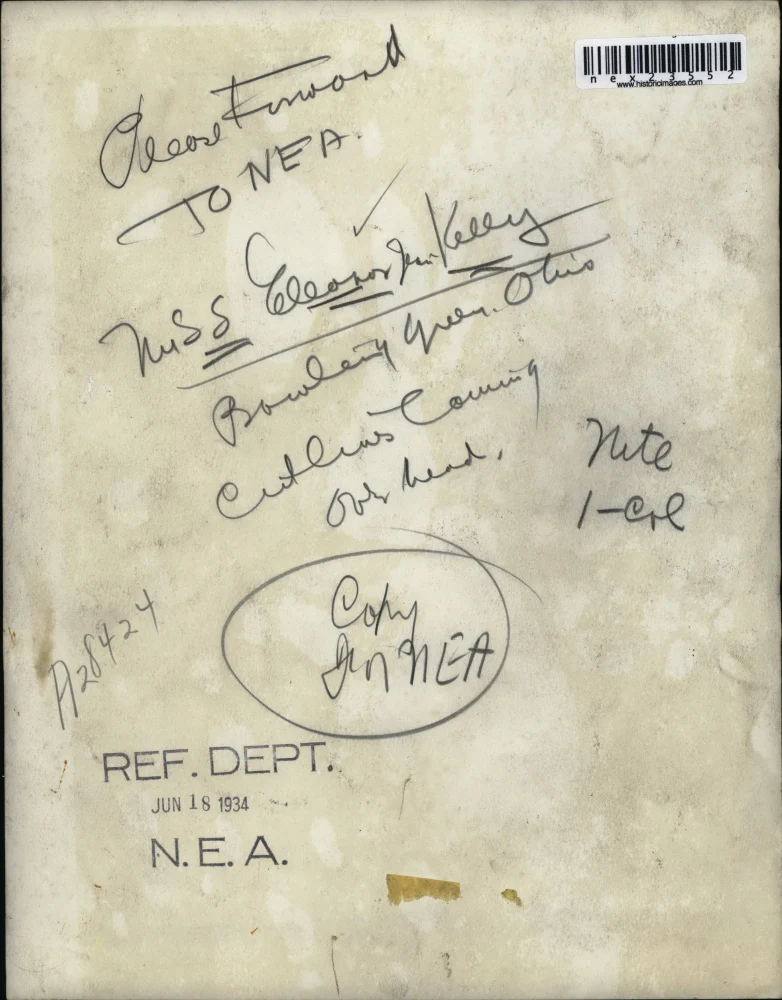 nex23552
www.historicimages.com
Please Forward
TO NEA.
Miss Eleanor Kelly
Bowling Green. Ohio
Cutlines Coming
Overhead.
Nite
1-Col
Copy
for NEA
A28424
REF. DEPT.
JUN 18 1934
N. E. A.